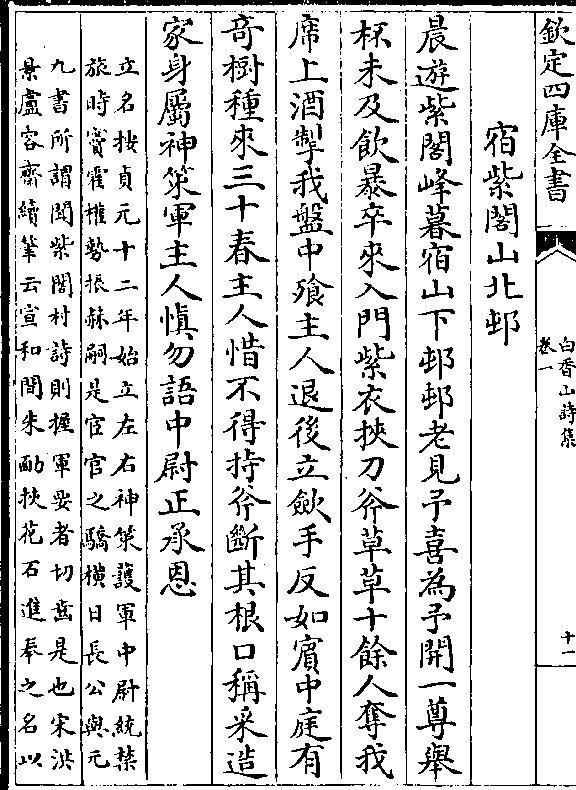 欽定四庫全書
白香山詩集
卷一
十一
宿紫閣山北邨
晨遊紫閣峰暮宿山下邨邨老見予喜為予開一尊舉
杯未及飲暴卒來入門紫衣挾刀斧草草十餘人奪我
席上酒掣我盤中飱主人退後立歛手反如賓中庭有
奇樹種來三十春主人惜不得持斧斷其根口稱采造
家身屬神策軍主人愼勿語中尉正承恩
立名按貞元十二年始立左右神策護軍中尉統禁
旅時竇霍權勢振赫嗣是宦官之驕横日長公與元
九書所謂聞紫閣村詩則握軍要者切齒是也宋洪
景盧容齋續筆云宣和間朱勔挾花石進奉之名以